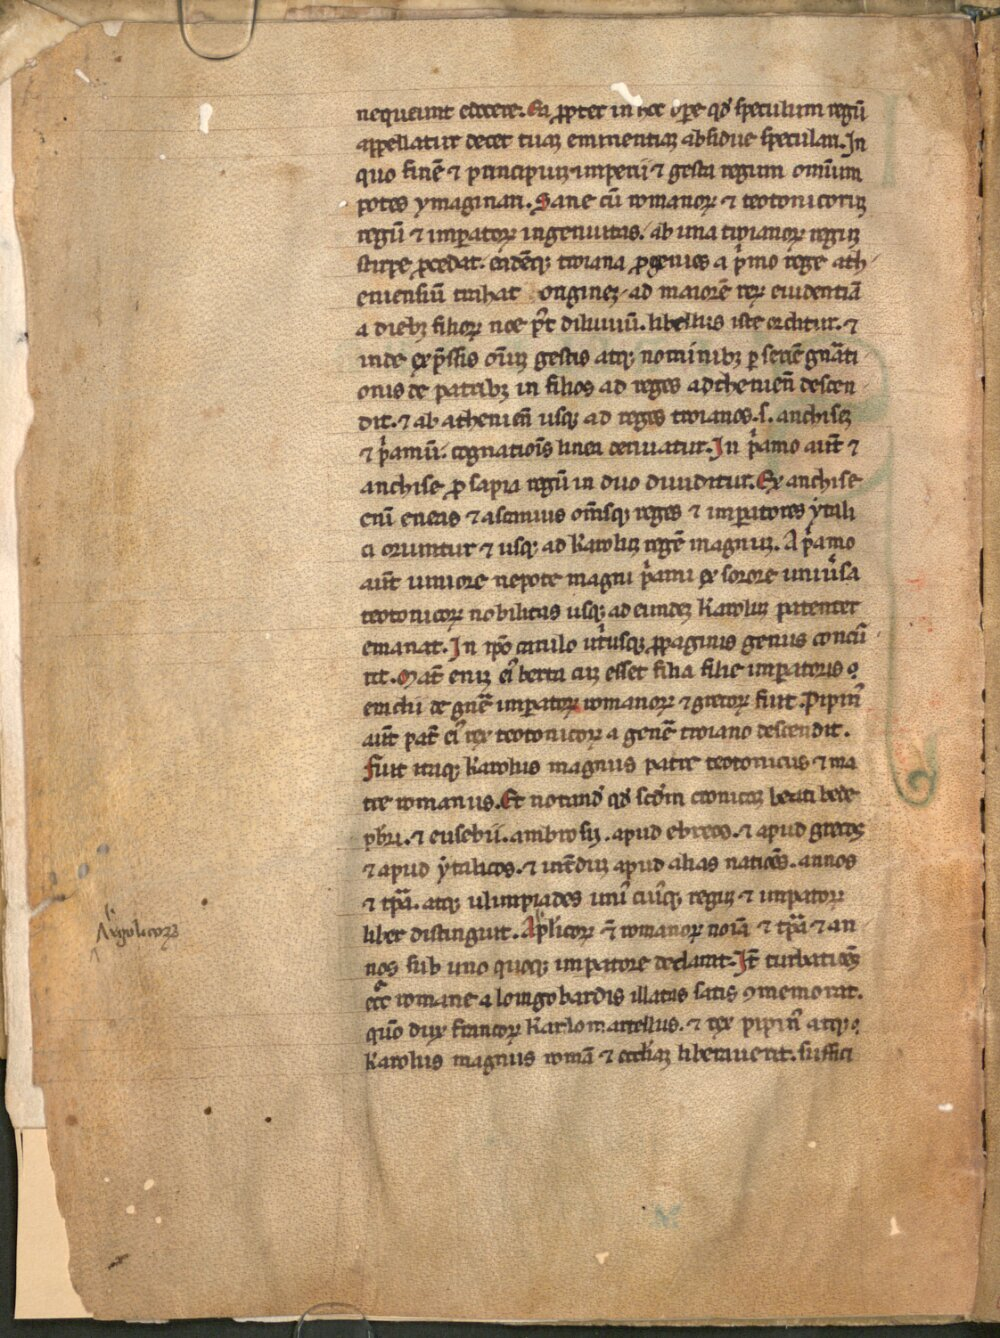 nequeunt edocere. Ea ꝓpter in hoc oꝑe qd̓ speculum regū
appellatur decet tuaꝫ eminentiaꝫ absidue speculari. In
quo finē ⁊ principiuꝫ imperii ⁊ gesta regum omium
potes ymaginari. Sane cū romanoꝝ ⁊ teotonicoruꝫ
regū ⁊ imꝑatoꝝ ingenuitas. ab una troianoꝝ reguꝫ
stirpe ꝓcedat. eadēqꝫ troiana ꝓgenies a pͥmo rege ath
eniensiū trahat origineꝫ ad maiorē reꝝ euidentiā
a diebꝫ filioꝝ noe pꝰt diluuiū. libellus iste orditur. ⁊
inde exp̄ssis oīuꝫ gestis atqꝫ nominibꝫ ꝑ seriē gn̄ati
onis de patribꝫ in filios ad reges adthenien̄ descen
dit. ⁊ ab athenien̄ usqꝫ ad reges troianos. s. anchiseꝫ
⁊ pͥamū. cognatiōis linea deriuatur. In pͥamo aut̄ ⁊
anchise ꝓsapia regū in duo diuiditur. Ex anchise
eni eneas ⁊ ascanius om̄isqꝫ reges ⁊ imꝑatores ytali
ci oriuntur ⁊ usqꝫ ad karoluꝫ regē magnuꝫ. A pͥamo
aut̄ iuniore nepote magni pͥami ex sorore uniu̓sa
teotonicoꝝ nobilitas usqꝫ ad eundeꝫ karoluꝫ patenter
emanat. In ip̄o carulo ut̓usqꝫ ꝓpaginis genus concu
rit. Mat̄ eniꝫ ei̓ berta cuꝫ esset filia filie imꝑatoris
de gn̄e imꝑatoꝝ romanoꝝ ⁊ grecoꝝ fuit. Pipinꝰ
aut̄ pat̄ ei̓ rex teotonicoꝝ a genē troiano descendit.
Fuit itaqꝫ karolus magnus patre teotonicus ⁊ ma
tre romanus. Et notand̓ qd̓ scd̓m cronicaꝫ beati bede
pbri. ⁊ eusebii. ambrosij. apud ebreos. ⁊ apud grecos
⁊ apud ytalicos. ⁊ apud alias natiōes. annos
⁊ tꝑa. atqꝫ ulimpiades uniꝰ cuiꝰqꝫ reguꝫ ⁊ imꝑatoꝝ
liber distinguit. Aplicoꝝ ⁊ romanoꝝ noīa ⁊ tꝑa ⁊ an
nos sub uno quoqꝫ impatore declarat. It̄ turbatiōes
ecc̄e romane a longobardis illatas satis ꝯmemorat.
quō dux francoꝝ karlomartellus. ⁊ rex pipinꝰ atqꝫ
karolus magnus romā ⁊ eccl̄iaꝫ liberauerit. suffici